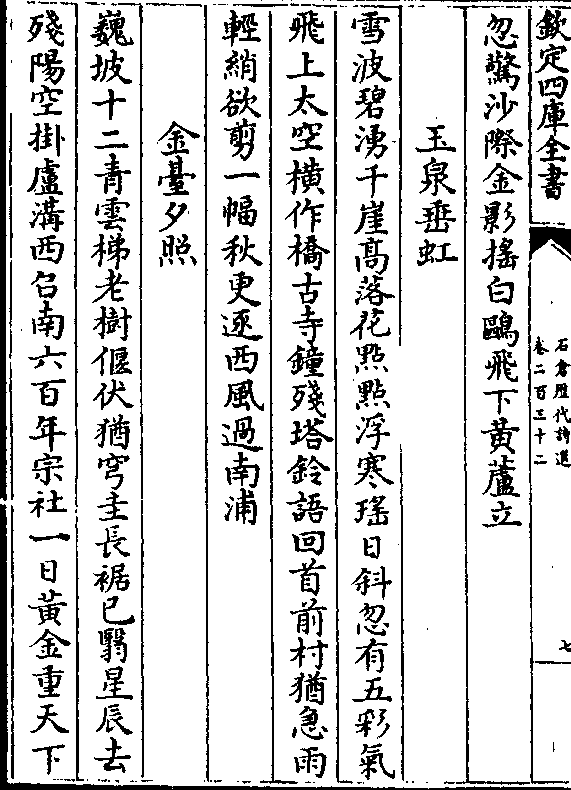 欽定四庫全書
石倉歷代詩選
卷二百三十二
七
忽驚沙際金影搖白鷗飛下黃蘆立
玉泉垂虹
雪波碧湧千崖高落花點點浮寒瑤日斜忽有五彩氣
飛上太空橫作橋古寺鐘殘塔鈴語回首前村猶急雨
輕綃欲剪一幅秋更逐西風過南浦
金臺夕照
巍坡十二青雲梯老樹偃伏猶穹圭長裾已翳星辰去
殘陽空掛盧溝西召南六百年宗社一日黃金重天下